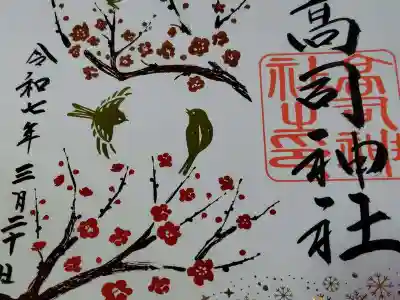 高司神社
高司神社之印
令和七年 三月二十日